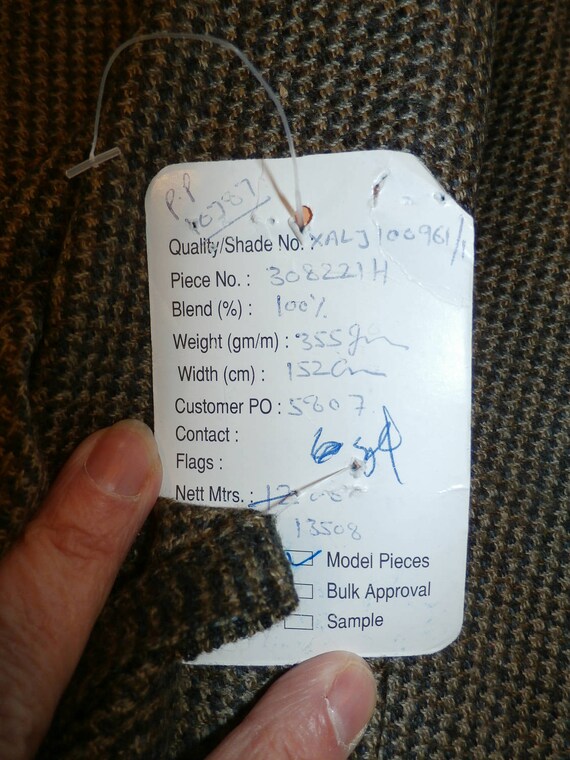 P.P
Quality/Shade No.: XALJ100961/1
Piece No. : 308221H
Blend (%) : 100%
Weight (gm/m) : 355gm
Width (cm) : 152Cm
Customer PO : 5807
Contact :
Flags :
Nett Mtrs. :
13508
Model Pieces
Bulk Approval
Sample